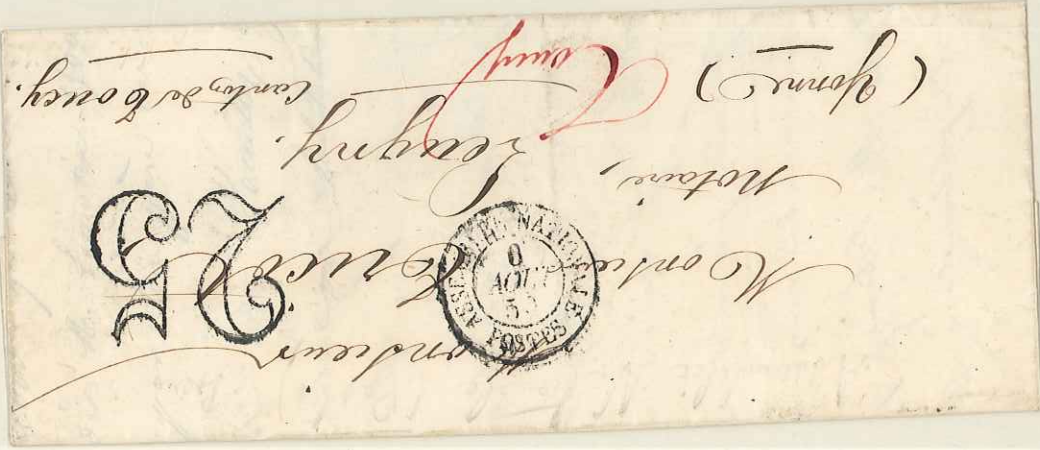 Monsieur
Monsieur
Notaire,
Leugny.
(Yonne)
Canton de Toucy.
Toucy
25
ASSEMBLEE NATIONALE
AOUT
POSTES